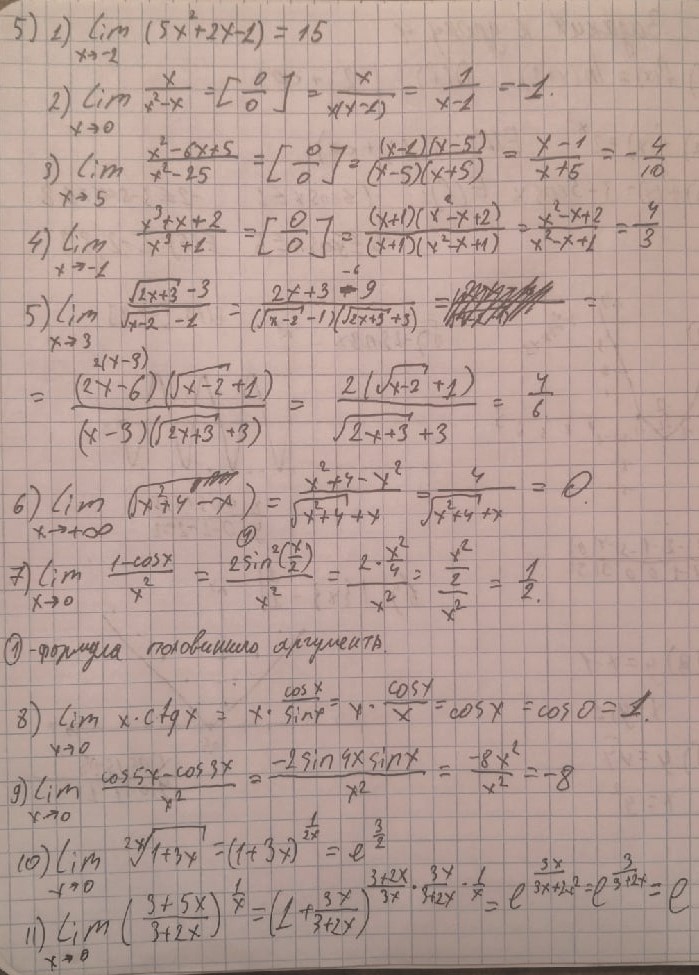 5) 1) lim x→-2 (5x²+2x-1) = 15
2) lim x→0 x/(x²-x) = [0/0] = x/(x(x-1)) = 1/(x-1) = -1.
3) lim x→5 (x²-6x+5)/(x²-25) = [0/0] = ((x-1)(x-5))/((x-5)(x+5)) = (x-1)/(x+5) = -4/10
4) lim x→-1 (x³+x+2)/(x³+1) = [0/0] = ((x+1)(x²-x+2))/((x+1)(x²-x+1)) = (x²-x+2)/(x²-x+1) = 4/3
5) lim x→3 (√(2x+3) -3)/(√(x-2) -1) = (2x+3-9)/((√(x-2) -1)(√(2x+3) +3)) = =
-6
2(x-3)
= ((2x-6)(√(x-2) +1))/((x-3)(√(2x+3) +3)) = (2(√(x-2) +1))/(√(2x+3) +3) = 4/6
6) lim x→+∞ (√(x²+4) -x) = (x²+4-x²)/(√(x²+4) +x) = 4/(√(x²+4) +x) = 0.
①
7) lim x→0 (1-cosx)/x² = (2sin²(x/2))/x² = (2·x²/4)/x² = (x²/2)/x² = 1/2.
① - формула половинного аргумента.
8) lim x→0 x·ctgx = x·cosx/sinx = x·cosx/x = cosx = cos0 = 1.
9) lim x→0 (cos5x-cos3x)/x² = (-2sin4xsinx)/x² = -8x²/x² = -8
10) lim x→0 ²ˣ√(1+3x) = (1+3x)^(1/2x) = e^(3/2)
11) lim x→0 ((3+5x)/(3+2x))^(1/x) = (1+3x/(3+2x))^((3+2x)/3x · 3x/(3+2x) · 1/x) = e^(3x/(3x+2x²)) = e^(3/(3+2x)) = e